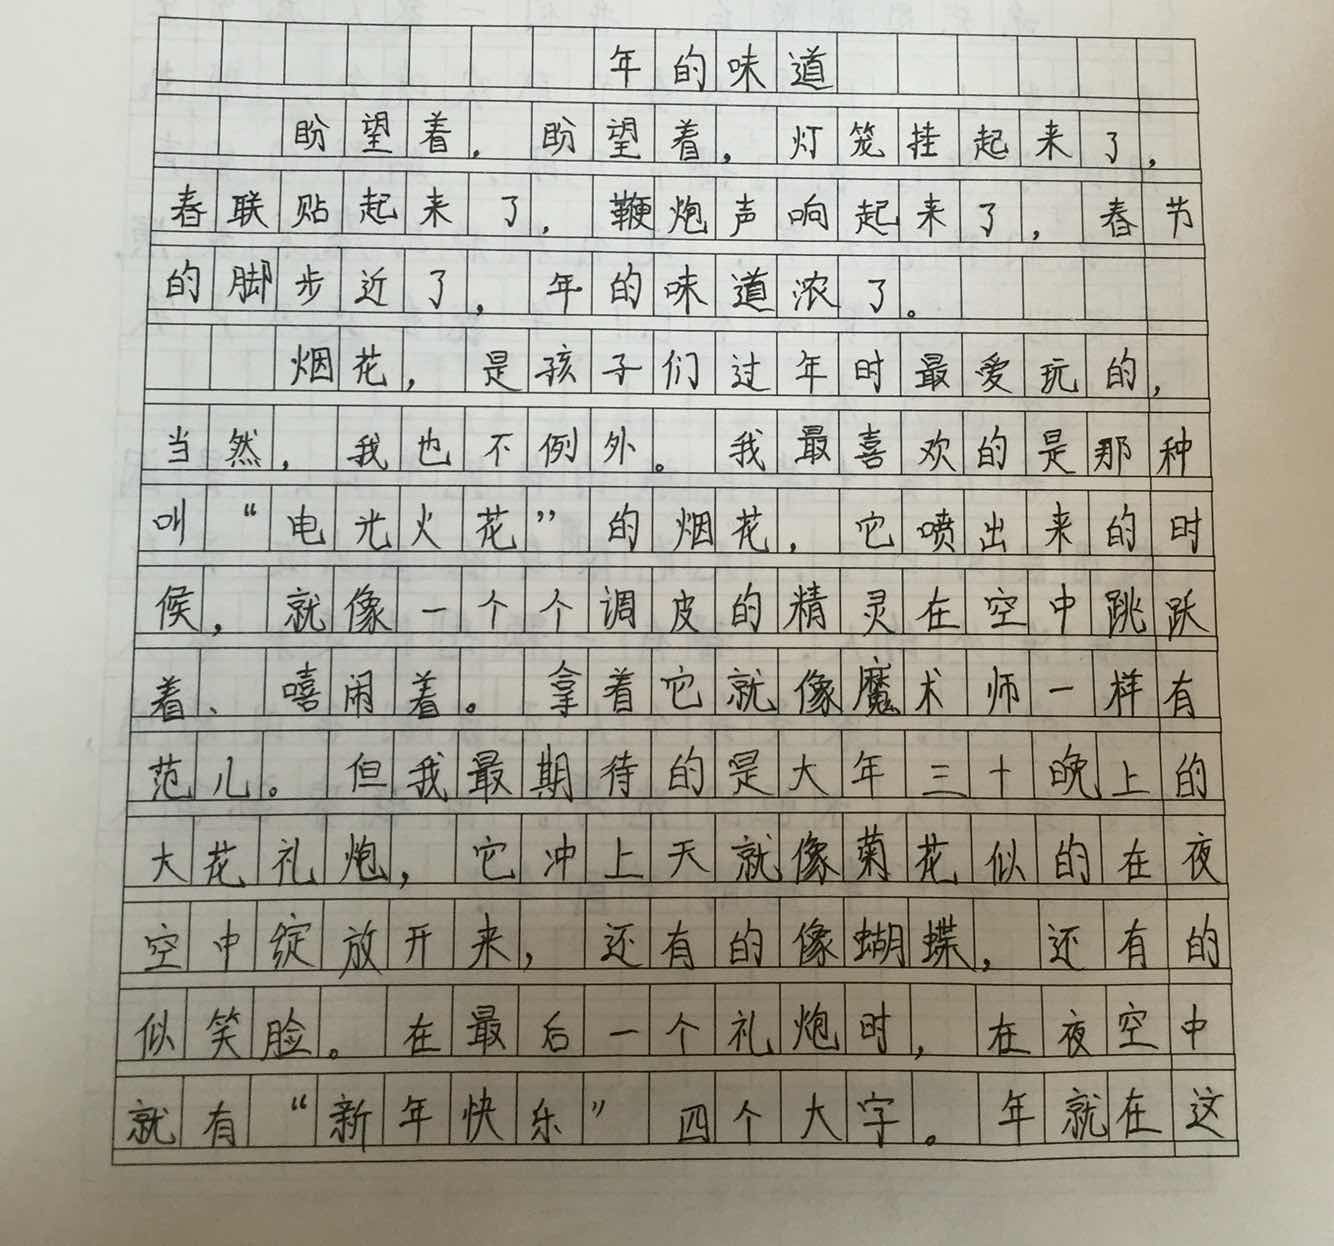 年的味道
盼望着，盼望着，灯笼挂起来了，
春联贴起来了，鞭炮声响起来了，春节
的脚步近了，年的味道浓了。
烟花，是孩子们过年时最爱玩的，
当然，我也不例外。我最喜欢的是那种
叫“电光火花”的烟花，它喷出来的时
候，就像一个个调皮的精灵在空中跳跃
着、嘻闹着。拿着它就像魔术师一样有
范儿。但我最期待的是大年三十晚上的
大花礼炮，它冲上天就像菊花似的在夜
空中绽放开来，还有的像蝴蝶，还有的
似笑脸。在最后一个礼炮时，在夜空中
就有“新年快乐”四个大字。年就在这